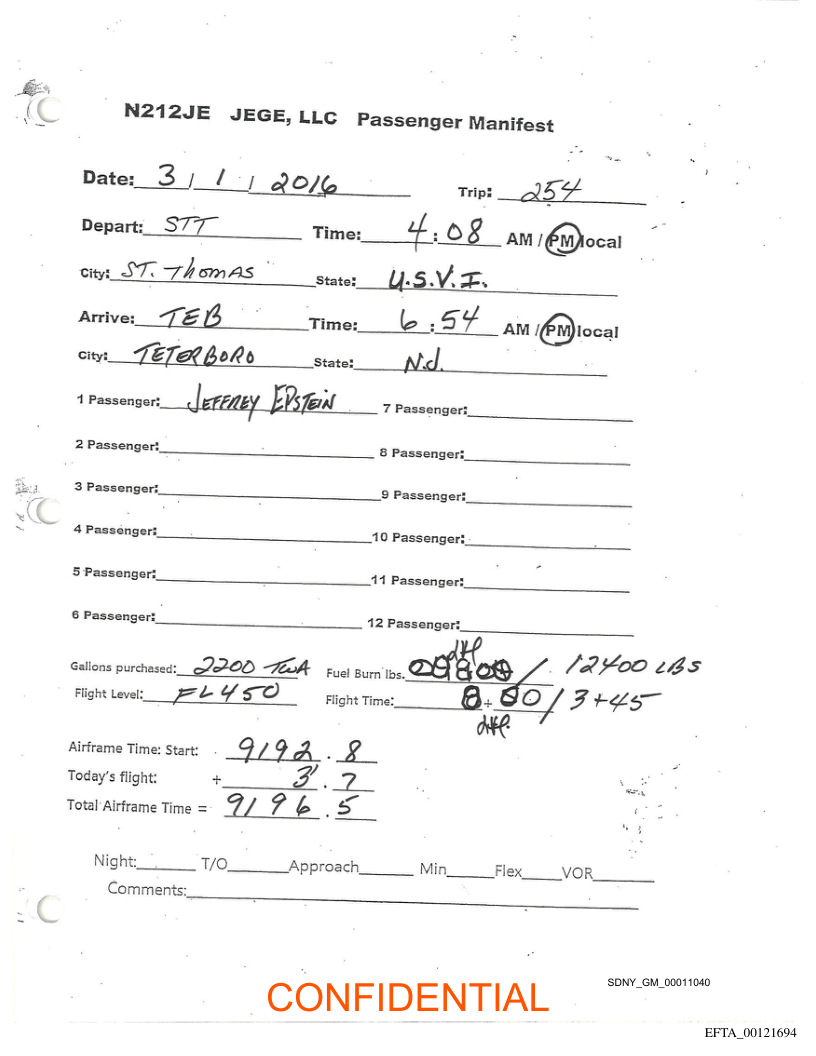 N212JE JEGE, LLC Passenger Manifest
Date: 3 / 1 / 2016 Trip: 254
Depart: STT Time: 4:08 AM / PM local
City: ST. THOMAS State: U.S.V.I.
Arrive: TEB Time: 6:54 AM / PM local
City: TETERBORO State: N.J.
1 Passenger: JEFFREY EPSTEIN 7 Passenger:
2 Passenger: 8 Passenger:
3 Passenger: 9 Passenger:
4 Passenger: 10 Passenger:
5 Passenger: 11 Passenger:
6 Passenger: 12 Passenger:
Gallons purchased: 2200 Fuel Burn lbs. / 12400 LBS
Flight Level: FL450 Flight Time: + / 3+45
Airframe Time: Start: 9192.8
Today's flight: + 3.7
Total Airframe Time = 9196.5
Night: T/O Approach Min Flex VOR
Comments:
SDNY_GM_00011040
CONFIDENTIAL
EFTA_00121694